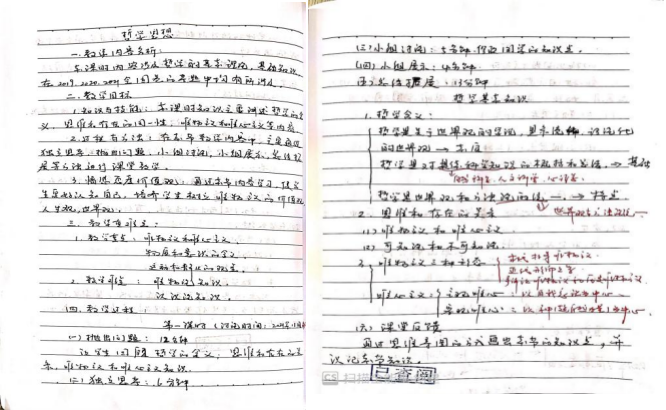 哲学思想
一、教学内容分析:
本课时内容涉及哲学的基本理论,基础知识
在2019、2020、2021全国卷的考题中均有所涉及。
二、教学目标
1.知识与技能:本课时知识主要讲述哲学的含
义,思维和存在的同一性,唯物主义和唯心主义等内容。
2.过程与方法:在本节教学内容中,主要通过
独立思考、抛出问题、小组讨论、小组展示、总结拓
展等方法进行课堂教学。
3.情感态度价值观:通过本节内容学习,使学
生更好认知自己,培养学生树立唯物主义的价值观
人生观,世界观。
三、教学重难点:
1.教学重点:唯物主义和唯心主义
物质和意识的含义
运动和静止的观点。
2.教学难点:唯物论知识。
认识论知识。
四、教学过程
第一课时
(一)抛出问题:12分钟
让学生回顾哲学的含义,思维和存在的关
系,唯物主义和唯心主义知识。
(二)独立思考:6分钟
(三)小组讨论:5分钟
(四)小组展示:4分钟
(五)总结拓展:13分钟
哲学基本知识
1.哲学含义:
哲学是关于世界观的学说,是系统化、理论化
的世界观 → 本质
哲学是对具体科学知识的概括和总结 →
哲学是世界观和方法论的统一 → 特点
2.思维和存在的关系
(1)唯物主义和唯心主义
(2)可知论和不可知论
3.唯物主义三种形态
古代朴素唯物主义
唯心主义:主观唯心
客观唯心
(六)课堂反馈
通过思维导图的方式画出本节的知识点,并
识记本节知识。
已查阅
CS 扫描